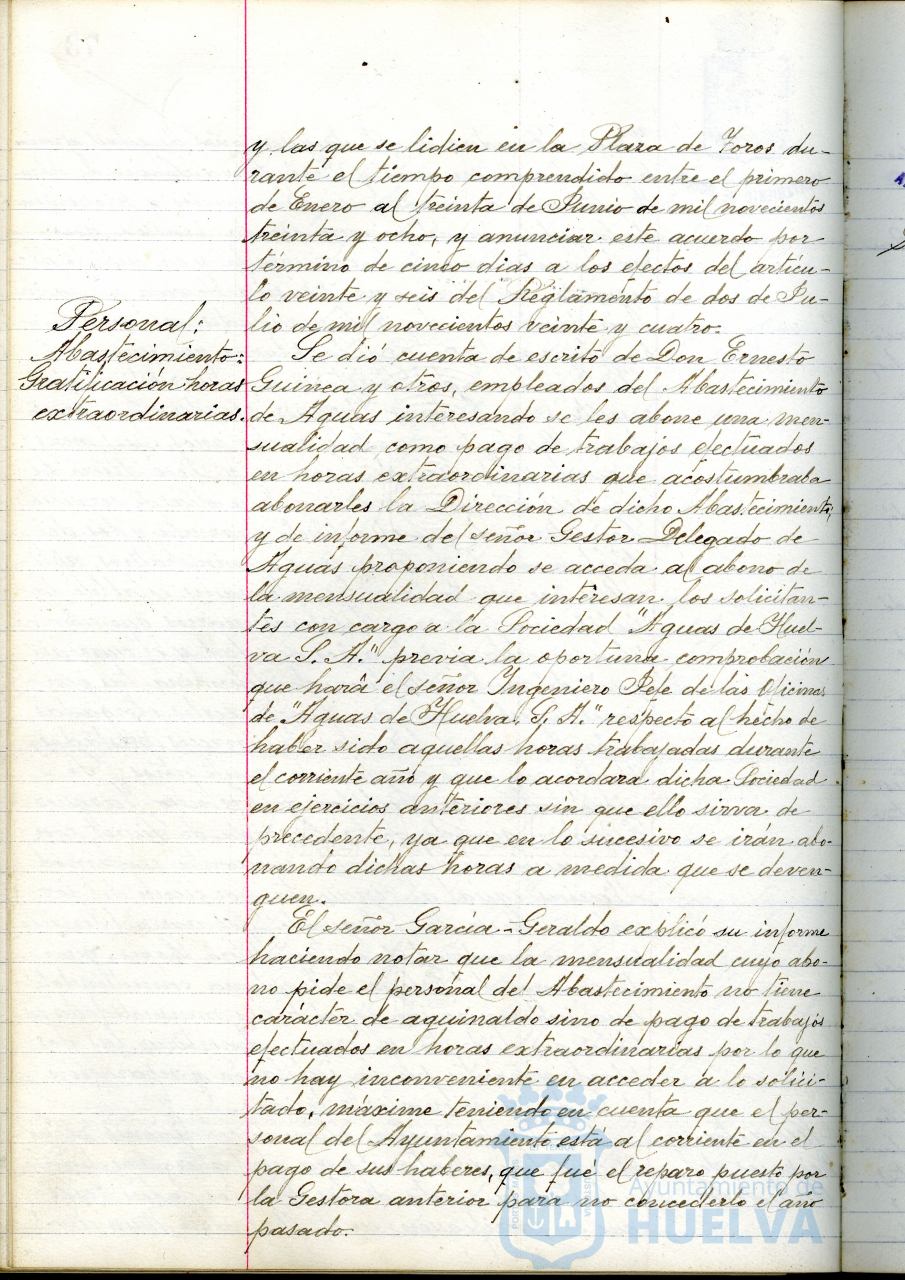 y las que se lidien en la Plaza de Toros du-
rante el tiempo comprendido entre el primero
de Enero al treinta de Junio de mil novecientos
treinta y ocho, y anunciar este acuerdo por
término de cinco dias a los efectos del artícu-
lo veinte y seis del Reglamento de dos de Ju-
lio de mil novecientos veinte y cuatro.
Personal:
Abastecimiento:
Gratificación horas
extraordinarias.
Se dió cuenta de escrito de Don Ernesto
Guinea y otros, empleados del Abastecimiento
de Aguas interesando se les abone una men-
sualidad como pago de trabajos efectuados
en horas extraordinarias que acostumbraba
abonarles la Dirección de dicho Abastecimiento,
y de informe del señor Gestor Delegado de
Aguas proponiendo se acceda al abono de
la mensualidad que interesan los solicitan-
tes con cargo a la Sociedad "Aguas de Huel-
va S. A." previa la oportuna comprobación
que hará el señor Ingeniero Jefe de las Oficinas
de "Aguas de Huelva, S. A." respecto al hecho de
haber sido aquellas horas trabajadas durante
el corriente año y que lo acordara dicha Sociedad
en ejercicios anteriores sin que ello sirva de
precedente, ya que en lo sucesivo se irán abo-
nando dichas horas a medida que se deven-
guen.
El señor García-Geraldo explicó su informe
haciendo notar que la mensualidad cuyo abo-
no pide el personal del Abastecimiento no tiene
carácter de aguinaldo sino de pago de trabajos
efectuados en horas extraordinarias por lo que
no hay inconveniente en acceder a lo solici-
tado, máxime teniendo en cuenta que el per-
sonal del Ayuntamiento está al corriente en el
pago de sus haberes, que fué el reparo puesto por
la Gestora anterior para no concederlo el año
pasado.
Ayuntamiento de
HUELVA